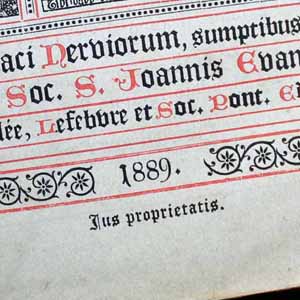 aci Nerviorum, sumptibus
Soc. S. Joannis Evan
lée, Lefebvre et Soc. Pont. E
1889.
Jus proprietatis.